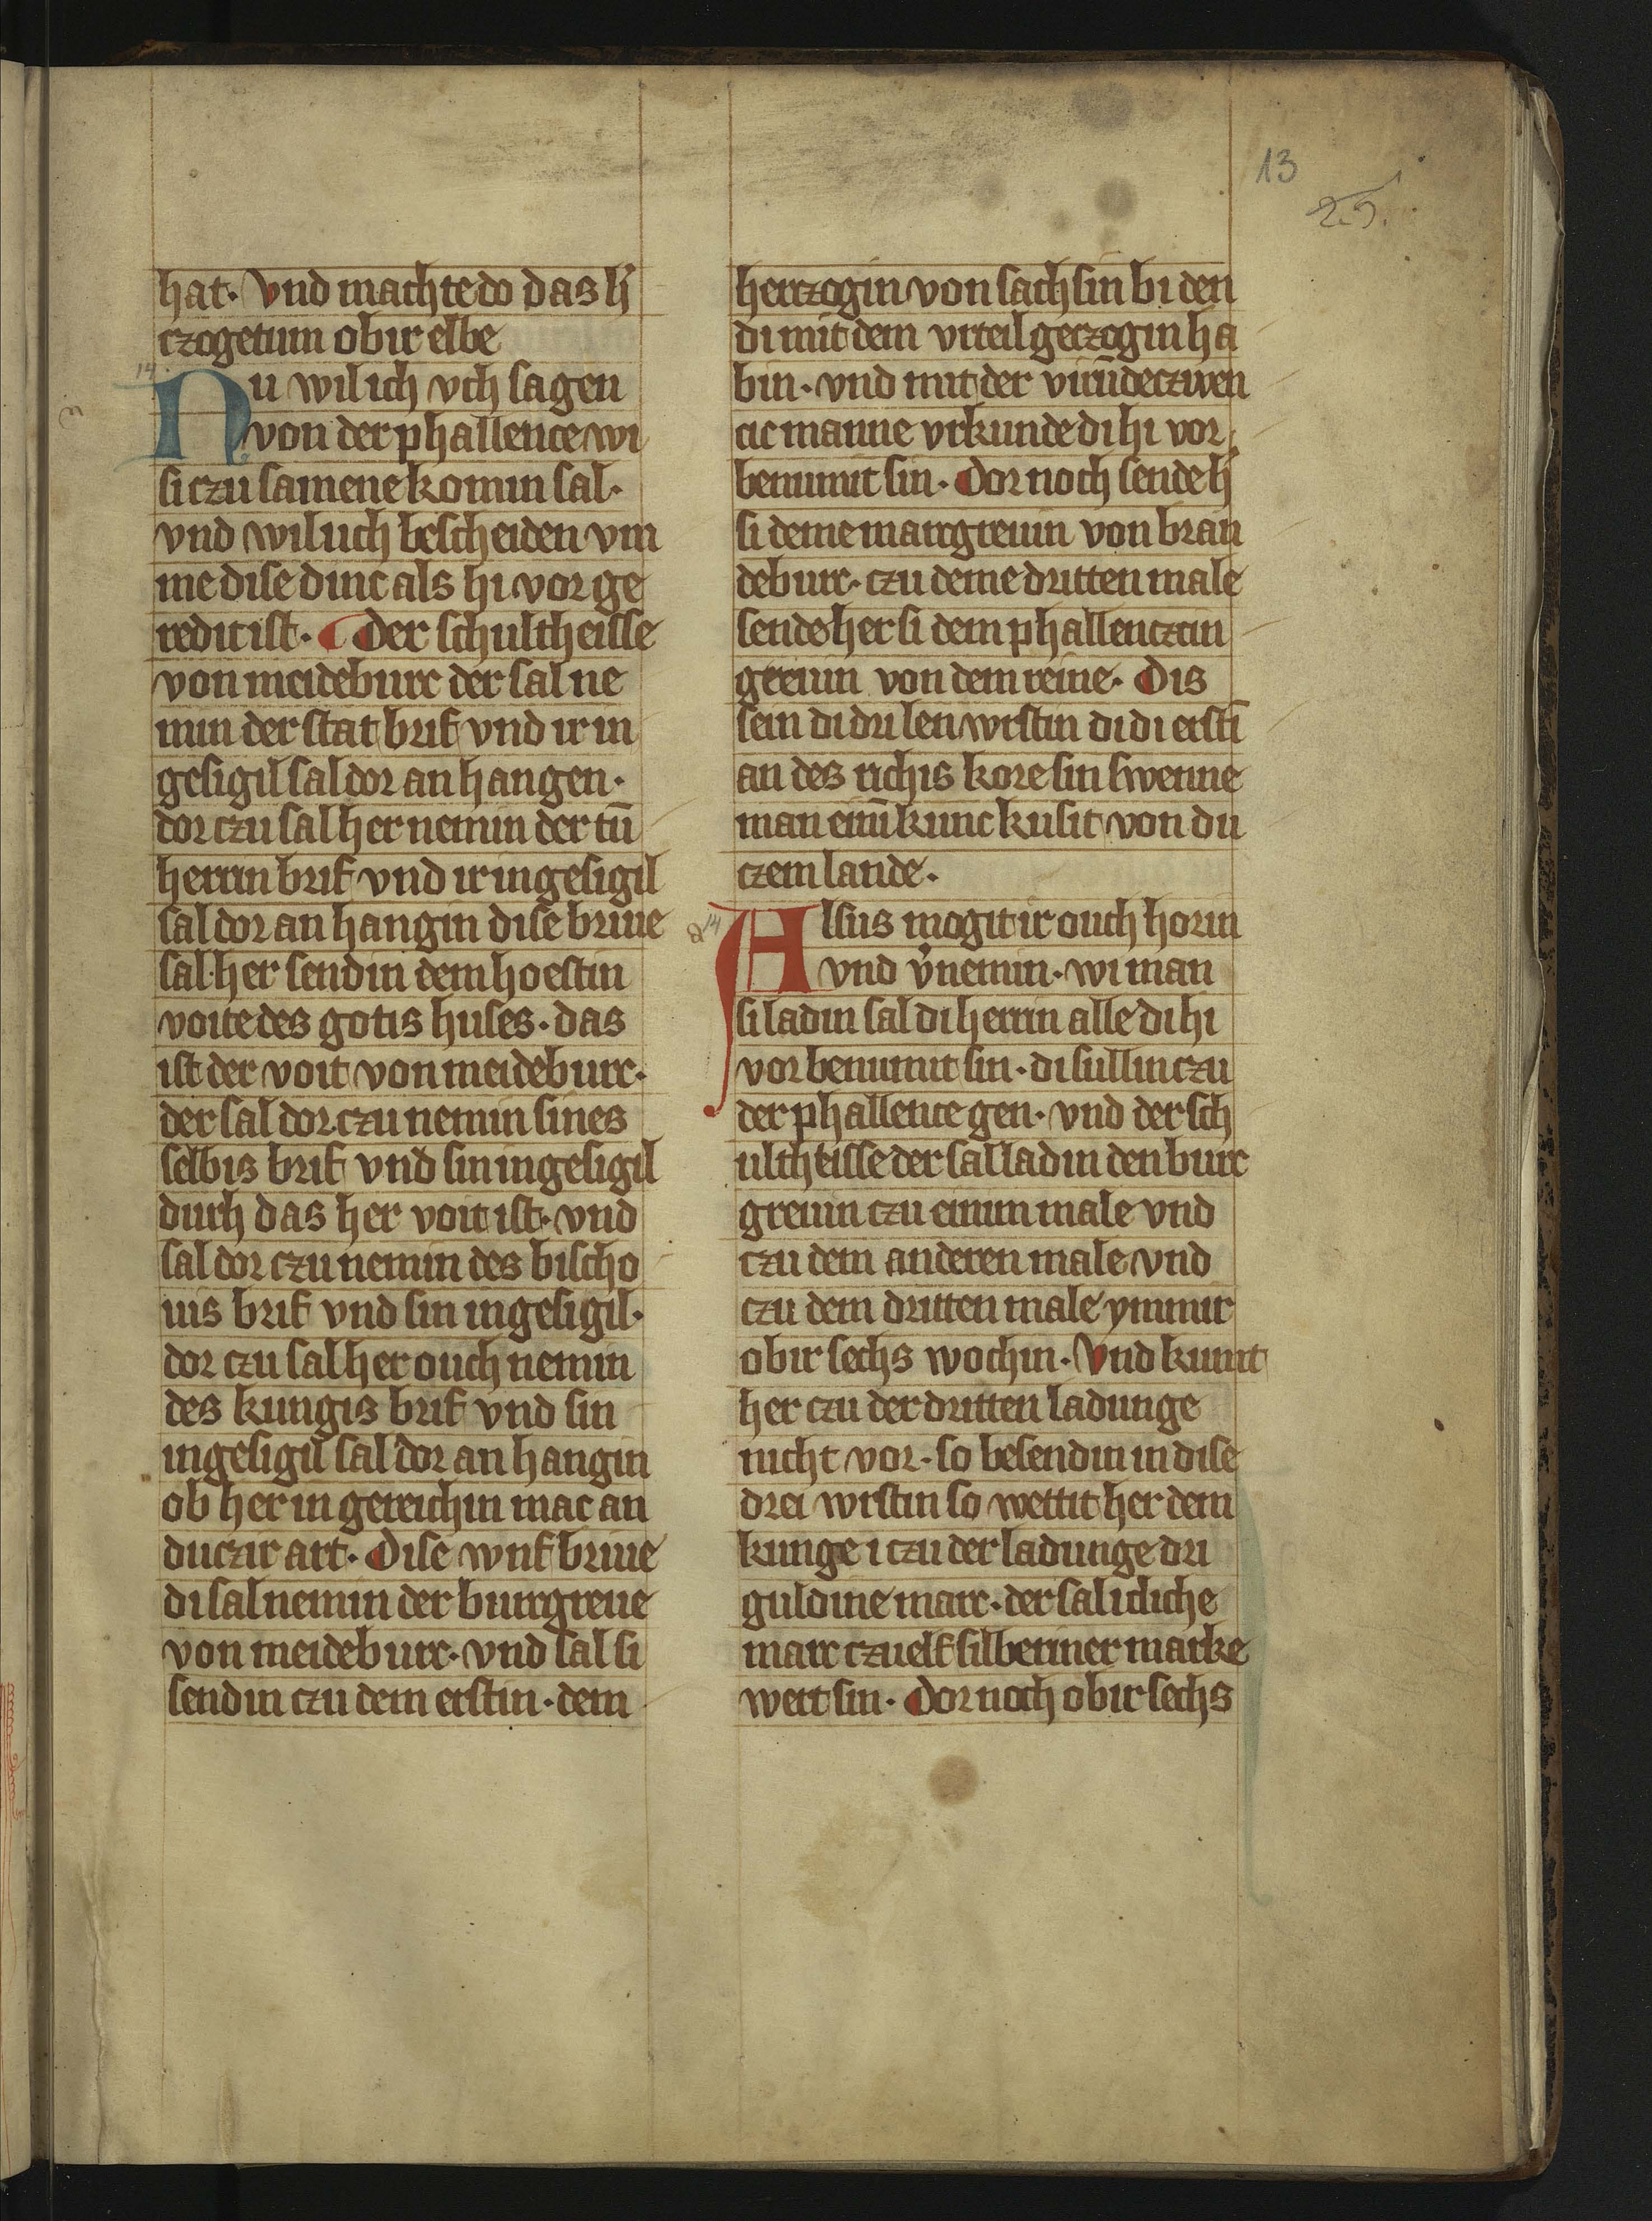 13
25.
hat. vnd machte do das h̓
czogetum obir elbe
14
Nu wil ich vch sagen
von der phallence wi
si czu samene komin sal.
vnd wil uch bescheiden vm
me dise dinc als hi vor ge
redit ist. Der schultheisse
von meideburc der sal ne
min der stat brif vnd ir in
gesigil sal dor an hangen.
dor czu sal her nemin der tū
herrin brif vnd ir ingesigil
sal dor an hangin dise briue
sal her sendin dem hoestin
voite des gotis huses. das
ist der voit von meideburc.
der sal dor czu nemin sines
selbis brif vnd sin ingesigil
durh das her voit ist. vnd
sal dor czu nemin des bischo
uis brif vnd sin ingesigil.
dor czu sal her ouch nemin
des kungis brif vnd sin
ingesigil sal dor an hangin
ob her in gereichin mac an
duczir art. Dise wnf briue
di sal nemin der burgreue
von meideburc. vnd sal si
sendin czu dem erstin. dem
herczogin von sachsin bi den
di mit dem vrteil geczogin ha
bin. vnd mit der virūdeczwen
cic manne vrkunde di hi vor
benumit sin. Dor noch sende h̓
si deme marcgreuin von bran
deburc. czu deme dritten male
sende her si dem phallenczin
greuin von dem reine. Dis
sein di dri len wrstin di di erstī
an des richis kore sin swenne
man einē kunc kusit von du
czem lande.
Alsus mogit ir ouch horin
vnd v̓nemin. wi man
si ladin sal di herrin alle di hi
vor benumit sin. di sullin czu
der phallence gen. vnd der sch
ultheisse der sal ladin den burc
greuin czu einim male vnd
czu dem anderen male vnd
czu dem dritten male ymmir
obir sechs wochin. Vnd kumt
her czu der dritten ladunge
nicht vor. so besendin in dise
drei wrstin so wettit her dem
kunge i czu der ladunge dri
guldine marc. der sal icliche
marc czuelf silberiner marke
wert sin. Dor noch obir sechs